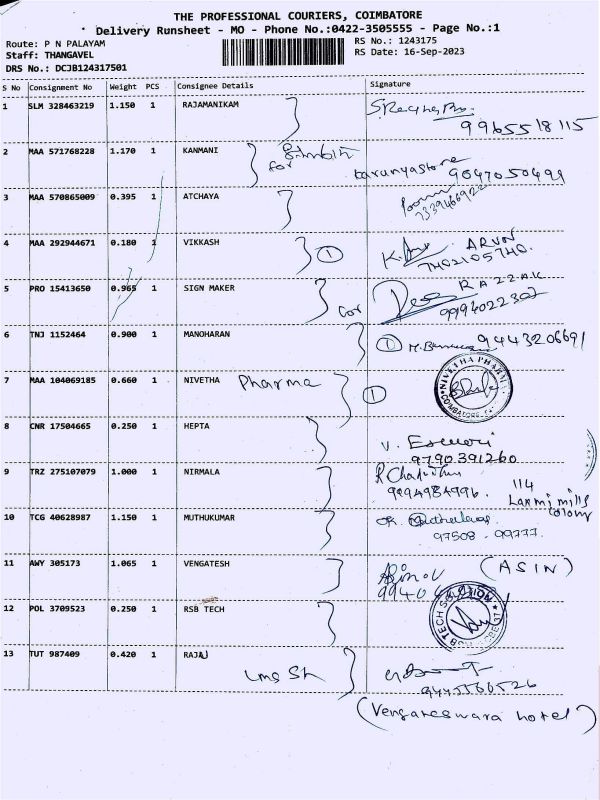 THE PROFESSIONAL COURIERS, COIMBATORE
Delivery Runsheet - MO - Phone No.:0422-3505555 - Page No.:1
Route: P N PALAYAM
RS No.: 1243175
Staff: THANGAVEL
RS Date: 16-Sep-2023
DRS No.: DCJB124317501
S No Consignment No Weight PCS Consignee Details Signature
1 SLM 328463219 1.150 1 RAJAMANIKAM
9965518115
2 MAA 571768228 1.170 1 KANMANI
for
9047050499
3 MAA 570865009 0.395 1 ATCHAYA
4 MAA 292944671 0.180 1 VIKKASH 1 ARUN
7402105740.
5 PRO 15413650 0.965 1 SIGN MAKER for RAZZAK
9994022302
6 TNJ 1152464 0.900 1 MANOHARAN 1 9443206691
7 MAA 104069185 0.660 1 NIVETHA Pharma 1
NIVETHA PHARMA
COIMBATORE
8 CNR 17504665 0.250 1 HEPTA
V. Eswari
9790391260
9 TRZ 275107079 1.000 1 NIRMALA
9994984996. 114
Laxmi mills
colony
10 TCG 40628987 1.150 1 MUTHUKUMAR
97508-99777.
11 AWY 305173 1.065 1 VENGATESH (ASIN)
12 POL 3709523 0.250 1 RSB TECH
13 TUT 987409 0.420 1 RAJAJ
Lms St
(Vengateswara hotel)